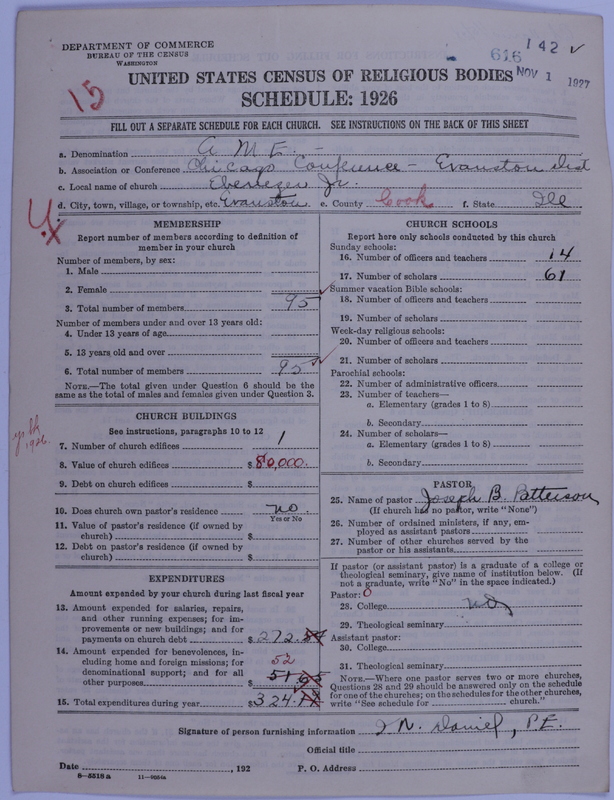 DEPARTMENT OF COMMERCE
BUREAU OF THE CENSUS
WASHINGTON
616
142 ✓
NOV 1 1927
15
UNITED STATES CENSUS OF RELIGIOUS BODIES
SCHEDULE: 1926
FILL OUT A SEPARATE SCHEDULE FOR EACH CHURCH. SEE INSTRUCTIONS ON THE BACK OF THIS SHEET
a. Denomination A. M. E.
b. Association or Conference Chicago Conference - Evanston Dist
c. Local name of church Ebenezer Jr.
d. City, town, village, or township, etc. Evanston e. County Cook f. State Ill
MEMBERSHIP
Report number of members according to definition of
member in your church
Number of members, by sex:
1. Male
2. Female
3. Total number of members 95
Number of members under and over 13 years old:
4. Under 13 years of age
5. 13 years old and over
6. Total number of members 95
NOTE.—The total given under Question 6 should be the
same as the total of males and females given under Question 3.
CHURCH BUILDINGS
See instructions, paragraphs 10 to 12
yr bk
1926
7. Number of church edifices 1
8. Value of church edifices $ 80,000.
9. Debt on church edifices $
10. Does church own pastor's residence no.
Yes or No
11. Value of pastor's residence (if owned by
church) $
12. Debt on pastor's residence (if owned by
church) $
EXPENDITURES
Amount expended by your church during last fiscal year
13. Amount expended for salaries, repairs,
and other running expenses; for im-
provements or new buildings; and for
payments on church debt $ 272.
14. Amount expended for benevolences, in-
cluding home and foreign missions; for
denominational support; and for all
other purposes $ 52 51.65
15. Total expenditures during year $ 324.
CHURCH SCHOOLS
Report here only schools conducted by this church
Sunday schools:
16. Number of officers and teachers 14
17. Number of scholars 61
Summer vacation Bible schools:
18. Number of officers and teachers
19. Number of scholars
Week-day religious schools:
20. Number of officers and teachers
21. Number of scholars
Parochial schools:
22. Number of administrative officers
23. Number of teachers—
a. Elementary (grades 1 to 8)
b. Secondary
24. Number of scholars—
a. Elementary (grades 1 to 8)
b. Secondary
PASTOR
25. Name of pastor Joseph B. Patterson
(If church has no pastor, write "None")
26. Number of ordained ministers, if any, em-
ployed as assistant pastors
27. Number of other churches served by the
pastor or his assistants
If pastor (or assistant pastor) is a graduate of a college or
theological seminary, give name of institution below. (If
not a graduate, write "No" in the space indicated.)
Pastor: 0
28. College no
29. Theological seminary
Assistant pastor:
30. College
31. Theological seminary
NOTE.—Where one pastor serves two or more churches,
Questions 28 and 29 should be answered only on the schedule
for one of the churches; on the schedules for the other churches,
write "See schedule for church."
Signature of person furnishing information J. N. Daniel, P.E.
Official title
Date , 192 P. O. Address
8—5518a 11—9054a